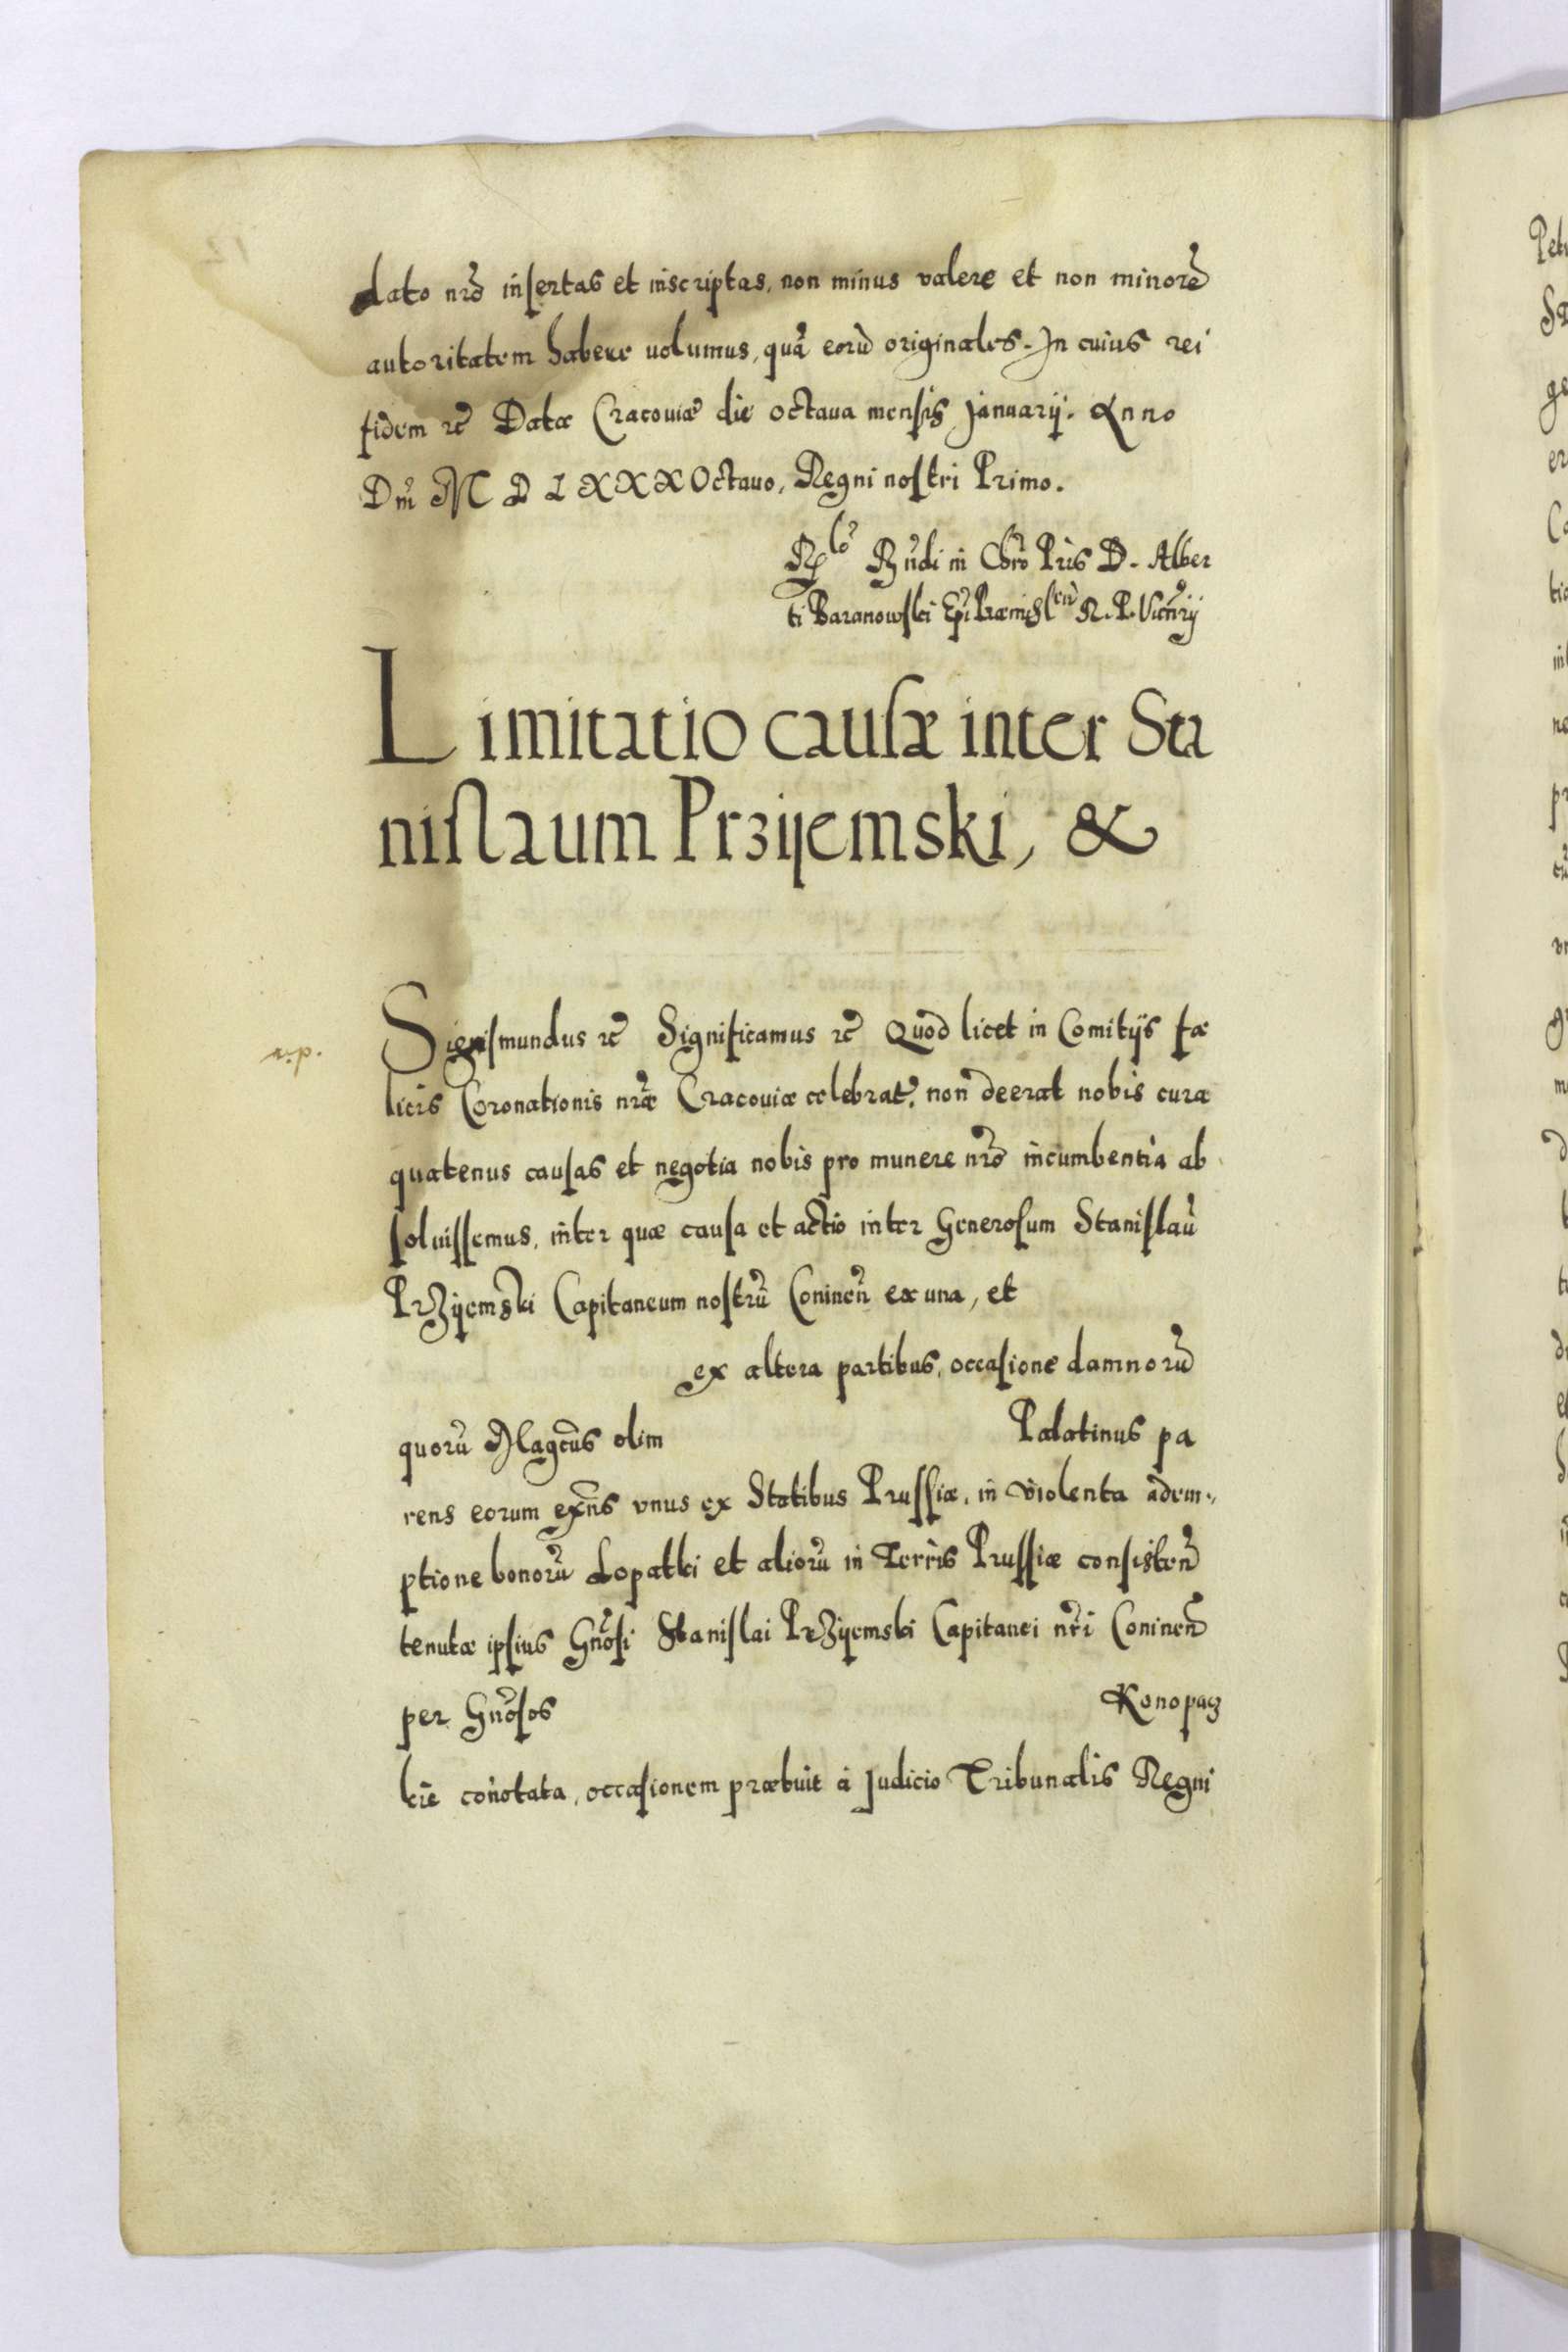 dato nr̃o insertas et inscriptas, non minus valere et non minorẽ
autoritatem habere uolumus, quã eorũ originales. In cuius rei
fidem etc̃ Datæ Cracouiæ die octaua mensis Januarij. Anno
Dñi M D L XXX Octauo, Regni nostri Primo.
Rñdi in Chrõ Pr̃is D. Alber
ti Baranowski Ep̃i Præmislẽn R. P. Vicñrij
Limitatio causæ inter Sta
nislaum Przijemski, &
Sigismundus etc̃ Significamus etc̃ Quod licet in Comitijs fæ
licis Coronationis nr̃æ Cracouiæ celebrat̃, non deerat nobis cura
quatenus causas et negotia nobis pro munere nr̃o incumbentia ab
soluissemus, inter quæ causa et actio inter Generosum Stanislaũ
Przijemski Capitaneum nostrũ Coninen̄ ex una, et
ex altera partibus, occasione damnorũ
quorũ Magcũs olim Palatinus pa
rens eorum exñs vnus ex Statibus Prussiæ, in violenta adem-
ptione bonorũ Lopatki et aliorũ in Terris Prussiæ consisten̄
tenutæ ipsius Gñosi Stanislai Przijemski Capitanei nr̃i Coninen̄
per Gñosos Konopacz
kie cõnotata, occasionem præbuit à Judicio Tribunalis Regni